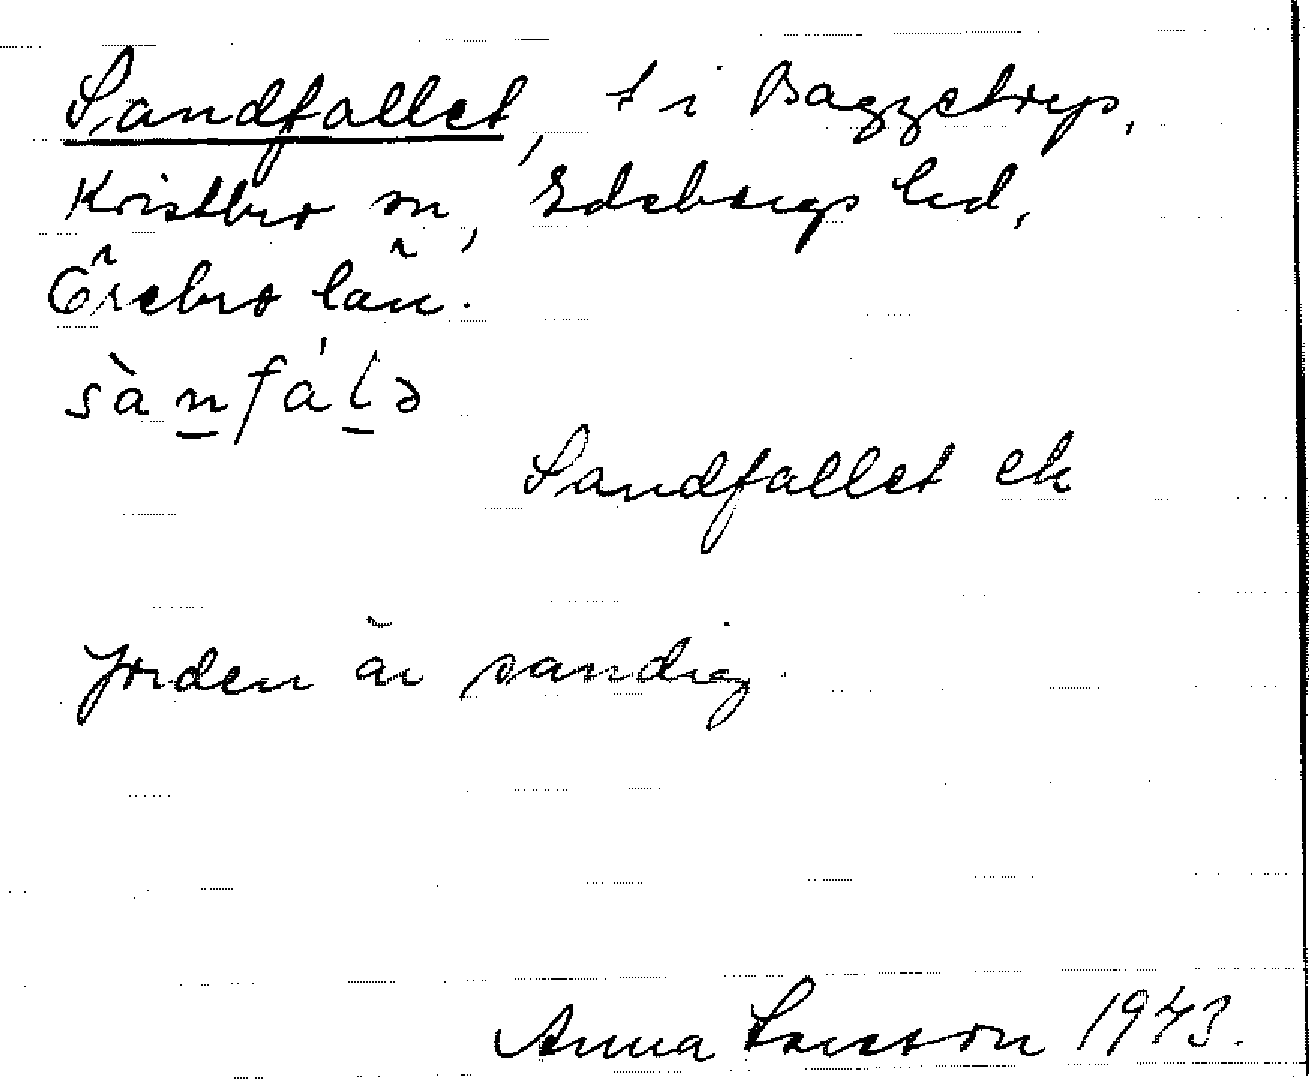 Sandfallet, t i Baggetorp,
Kvistbro sn, Edsbergs hd,
Örebro län.
sànfál̠ə
Sandfallet ek
Jorden är sandig.
Anna Larsson 1943.